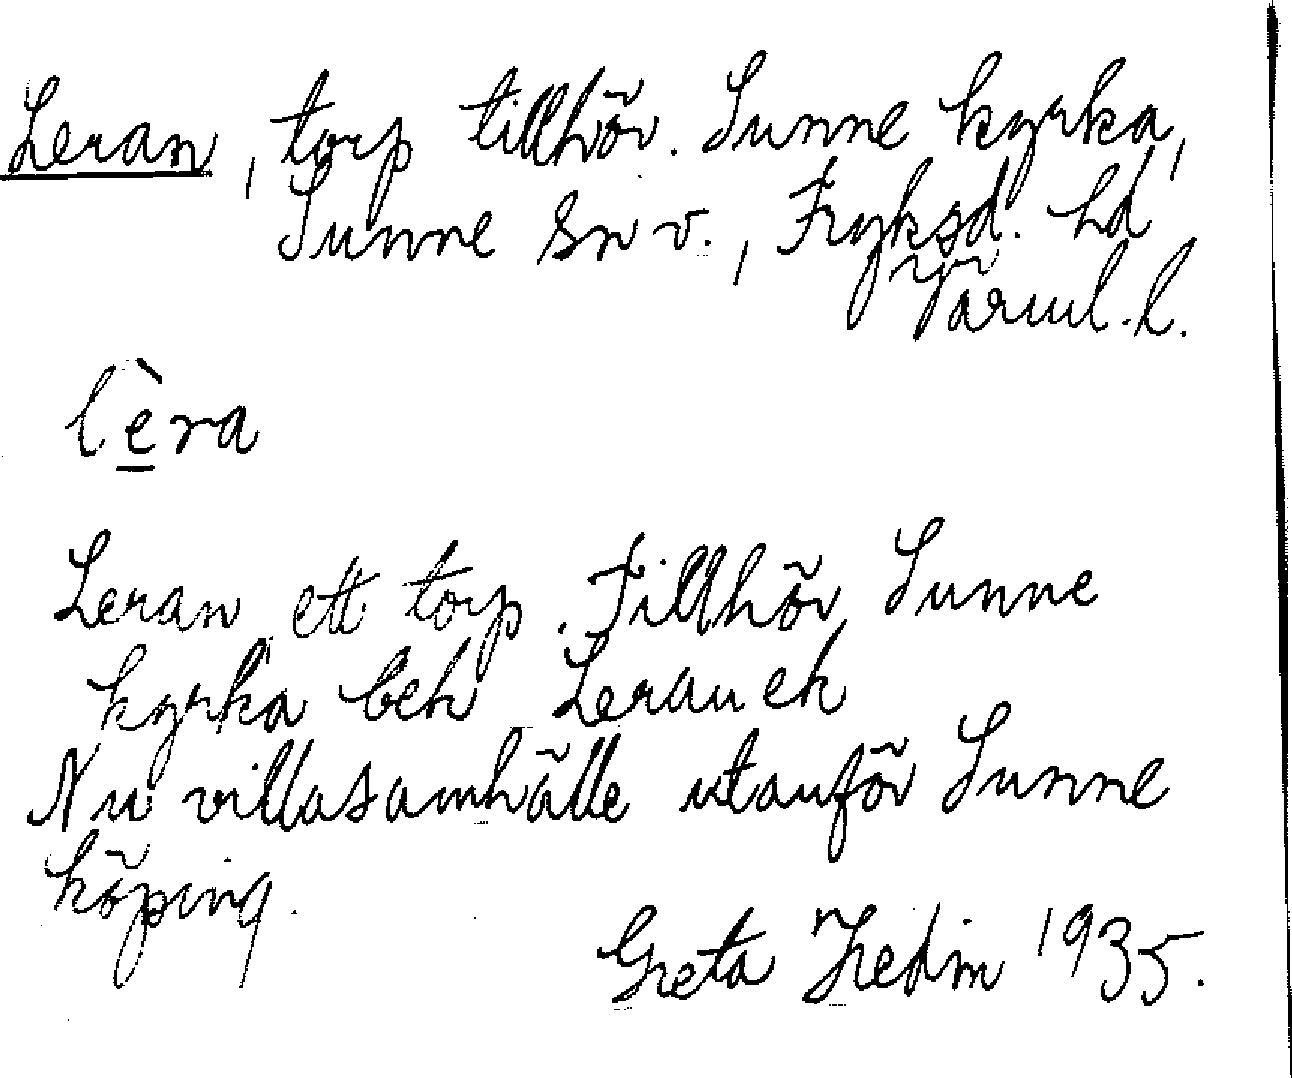 Leran, torp tillhör. Sunne kyrka,
Sunne sn v., Fryksd. hd
Värml. l.
lèra
Leran ett torp. Tillhör Sunne
kyrka beh Leran eh
Nu villasamhälle utanför Sunne
köping.
Greta Hedin 1935.